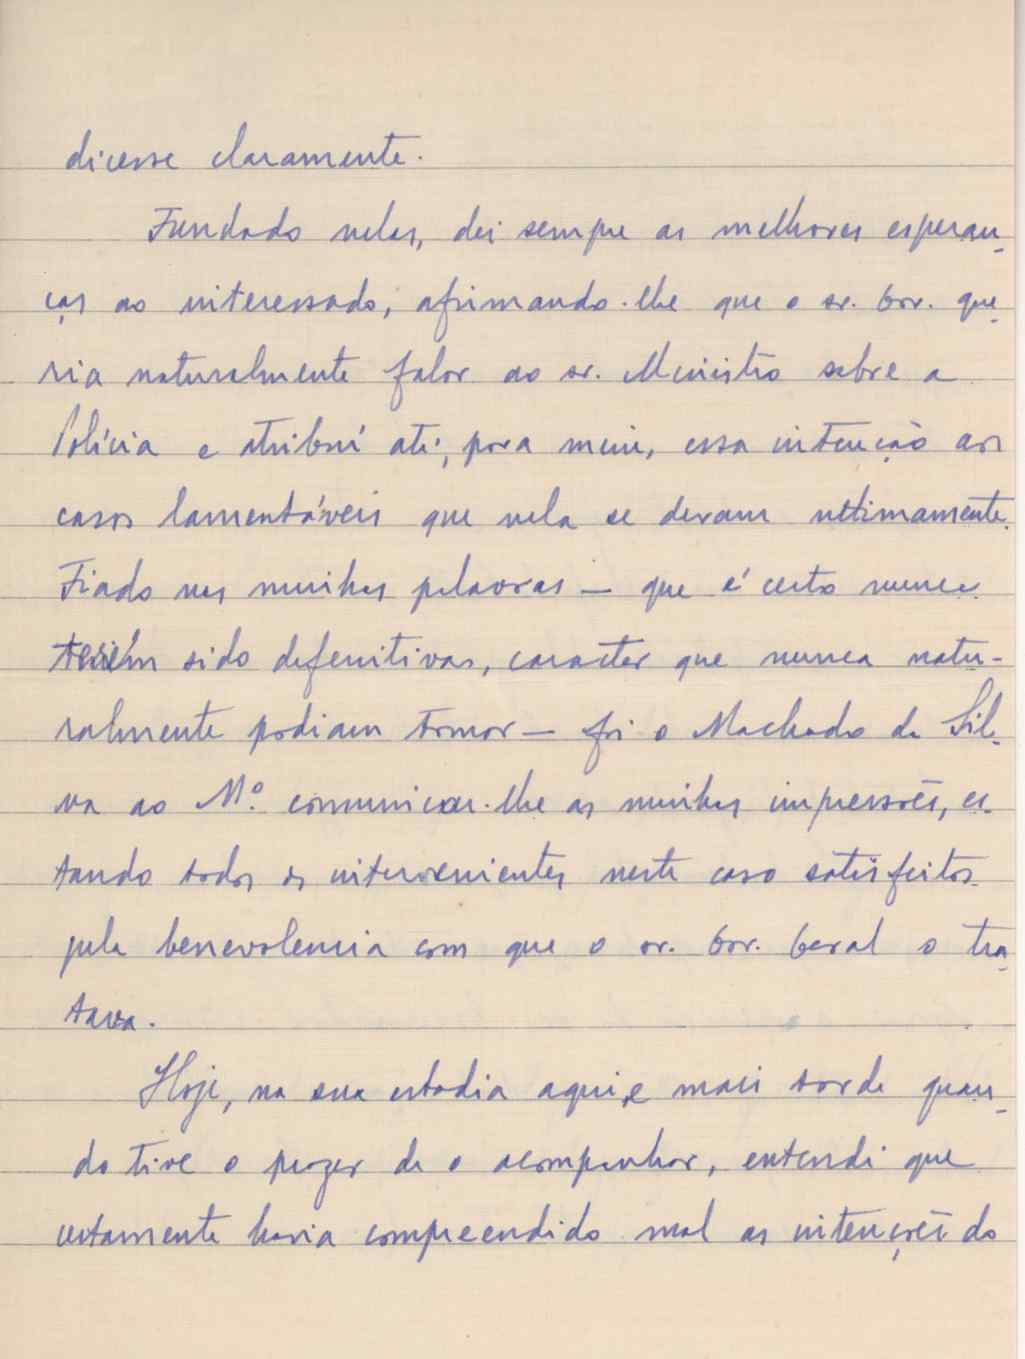 dicesse claramente.
Fundado nelas, dei sempre as melhores esperan-
ças ao interessado, afirmando-lhe que o sr. Gov. que-
ria naturalmente falar ao sr. Ministro sobre a
Polícia e atribuí até, para mim, essa intenção aos
casos lamentáveis que nela se deram ultimamente.
Fiado nas minhas palavras — que é certo nunca
terem sido defenitivas, caracter que nunca natu-
ralmente podiam tomar — foi o Machado da Sil-
va ao Mº. comunicar-lhe as minhas impressões, es-
tando todos os intervenientes neste caso satisfeitos
pela benevolencia com que o sr. Gov. Geral o tra-
tava.
Hoje, na sua estadia aqui, e mais tarde quan-
do tive o prazer de o acompanhar, entendi que
certamente havia compreendido mal as intenções do